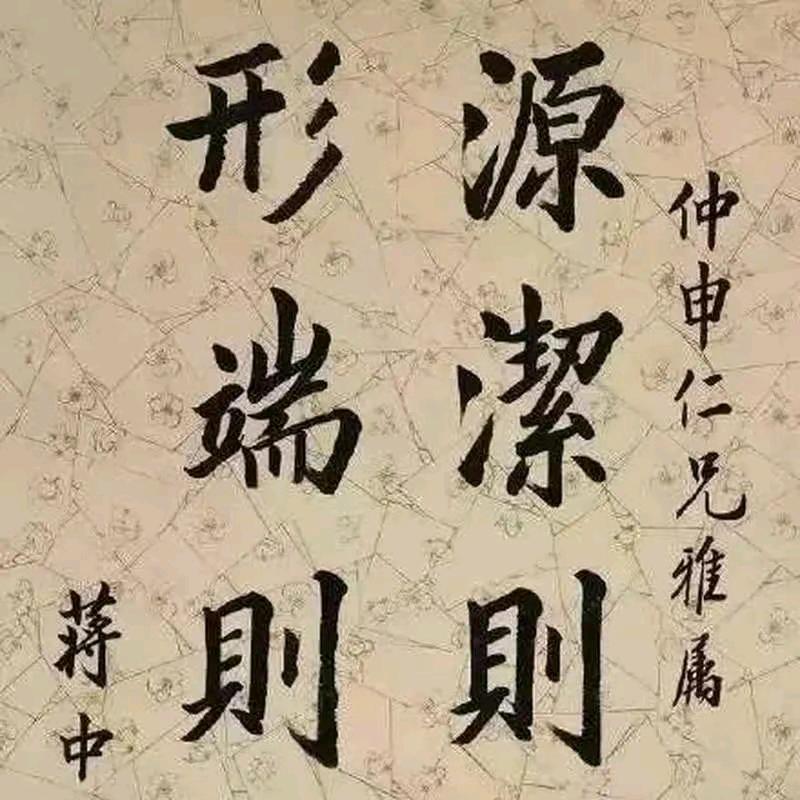 仲申仁兄雅属
源潔則
形端則
蒋中